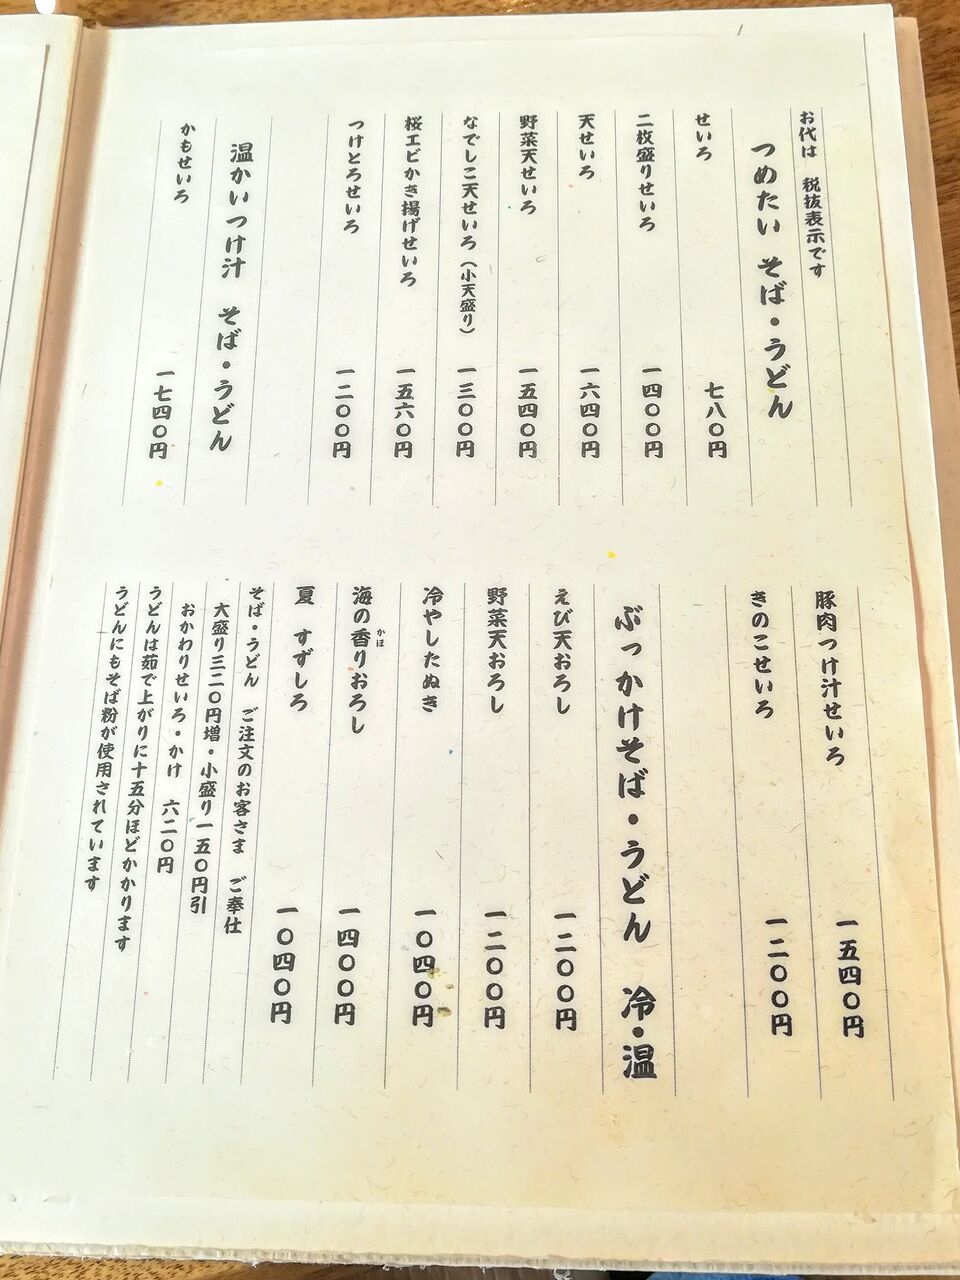 お代は　税抜表示です
つめたい　そば・うどん
せいろ　七八〇円
二枚盛りせいろ　一四〇〇円
天せいろ　一六四〇円
野菜天せいろ　一五四〇円
なでしこ天せいろ（小天盛り）　一三〇〇円
桜エビかき揚げせいろ　一五六〇円
つけとろせいろ　一二〇〇円
温かいつけ汁　そば・うどん
かもせいろ　一七四〇円
豚肉つけ汁せいろ　一五四〇円
きのこせいろ　一二〇〇円
ぶっかけそば・うどん　冷・温
えび天おろし　一二〇〇円
野菜天おろし　一二〇〇円
冷やしたぬき　一〇四〇円
海の香りおろし　一四〇〇円
かほ
夏　すずしろ　一〇四〇円
そば・うどん　ご注文のお客さま　ご奉仕
大盛り三二〇円増・小盛り一五〇円引
おかわりせいろ・かけ　六二〇円
うどんは茹で上がりに十五分ほどかかります
うどんにもそば粉が使用されています